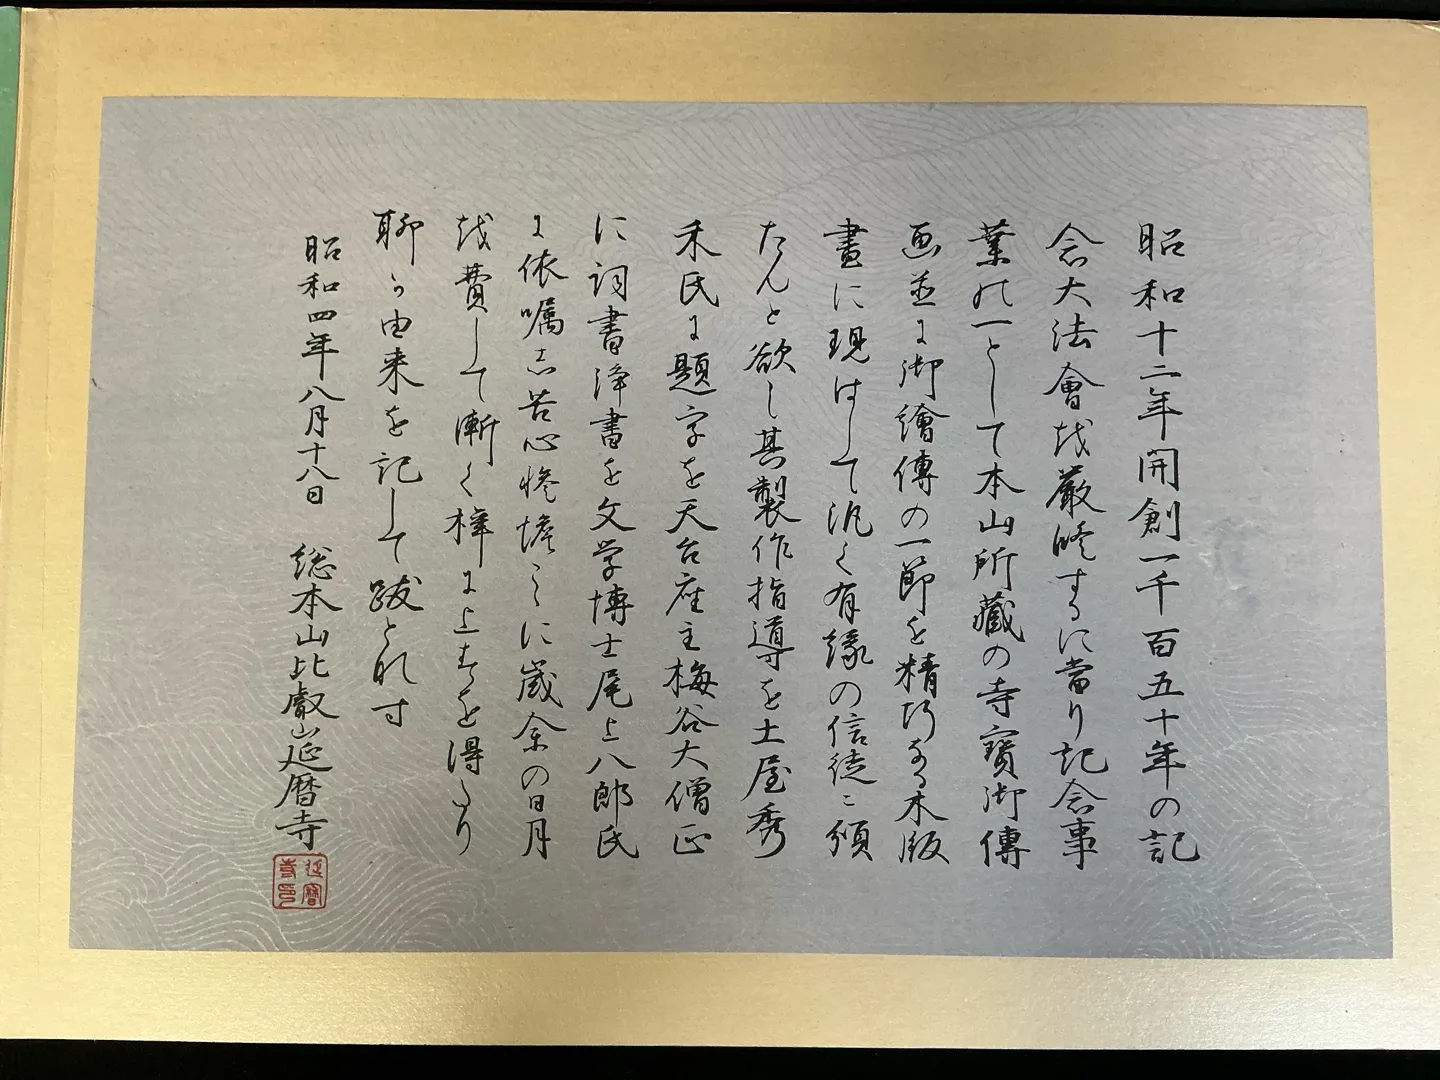 昭和十二年開創一千百五十年の記
念大法會を厳修するに當り記念事
業の一として本山所蔵の寺寳御傳
画並に御繪傳の一節を精巧なる木版
畫に現はして汎く有縁の信徒に頒
たんと欲し其製作指導を土屋秀
禾氏に題字を天台座主梅谷大僧正
に詞書浄書を文学博士尾上八郎氏
に依嘱し苦心惨憺こゝに歳余の日月
を費して漸く梓に上すを得たり
聊か由来を記して跋となす
昭和四年八月十八日 総本山比叡山延暦寺
延暦寺印